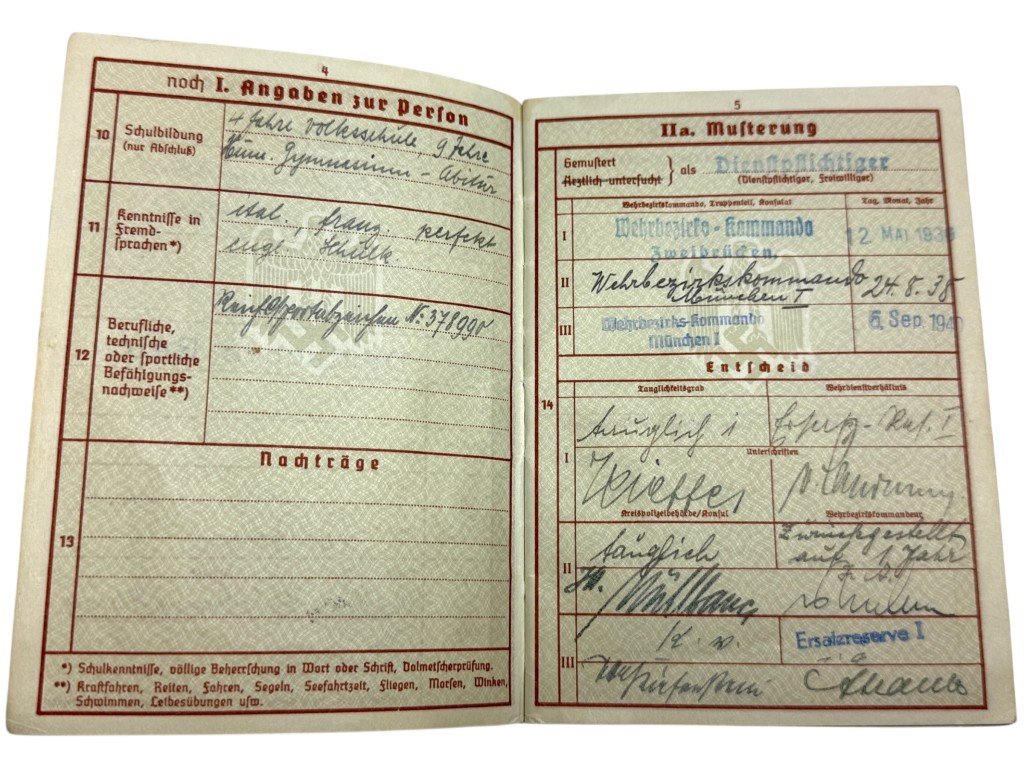 4
noch I. Angaben zur Person
10
Schulbildung
(nur Abschluß)
4 Jahre Volksschule 9 Jahre
Hum. Gymnasium - Abitur
11
Kenntnisse in
Fremd-
sprachen*)
ital., franz. perfekt
engl. Schulk.
12
Berufliche,
technische
oder sportliche
Befähigungs-
nachweise**)
Reichssportabzeichen No: 378990
Nachträge
13
*) Schulkenntnisse, völlige Beherrschung in Wort oder Schrift, Dolmetscherprüfung.
**) Kraftfahren, Reiten, Fahren, Segeln, Seefahrtzeit, Fliegen, Morsen, Winken,
Schwimmen, Leibesübungen usw.
5
IIa. Musterung
Gemustert
Ärztlich untersucht
als Dienstpflichtiger
(Dienstpflichtiger, Freiwilliger)
Wehrbezirkskommando, Truppenteil, Konsulat
Tag, Monat, Jahr
I
Wehrbezirks-Kommando
Zweibrücken.
12 MAI 193
II
Wehrbezirkskommando
München I
24.8.38
III
Wehrbezirks-Kommando
München I
6. Sep. 194
Entscheid
14
Tauglichkeitsgrad
Wehrdienstverhältnis
I
tauglich 1
Ersatz-Res. I
Unterschriften
Kreispolizeibehörde/Konsul
Wehrbezirkskommandeur
II
tauglich
Zurückgestellt
auf 1 Jahr
III
k. v.
Ersatzreserve I